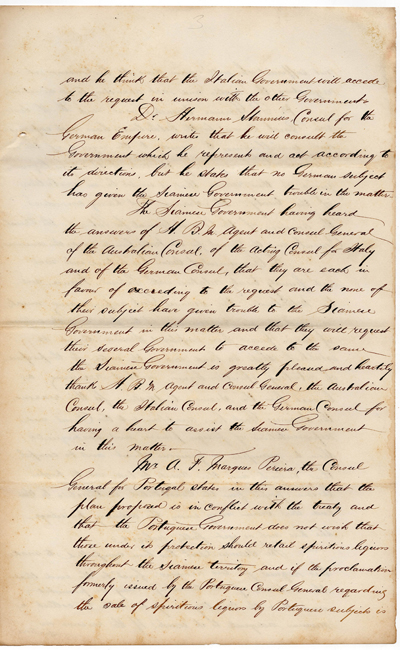 and he think that the Italian Government will accede
to the request in unison with the other Government.
Dr Hermann Stannius, Consul for the
German Empire, writes that he will consult the
Government which he represents and act according to
its directions, but he states that no German subject
has given the Siamese Government trouble in the matter.
The Siamese Government having heard
the answers of H B M Agent and Consul General
of the Australian Consul, of the Acting Consul for Italy
and of the German Consul, that they are each in
favour of according to the request and the none of
their subject have given trouble to the Siamese
Government in this matter and that they will request
their several Government to accede to the same
the Siamese Government is greatly pleased and heartily
thanks H B M Agent and Consul General, the Australian
Consul, the Italian Consul, and the German Consul for
having a heart to assist the Siamese Government
in this matter.
Mr A. F. Marques Pereira, the Consul
General for Portugal states in this answers that the
plan proposed is in conflict with the treaty and
that the Portuguese Government does not wish that
those under it protection should retail spiritious liquors
throughout the Siamese territory and if the proclamation
formerly issued by the Portuguese Consul General regarding
the sale of spiritious liquors by Portuguese subjects is